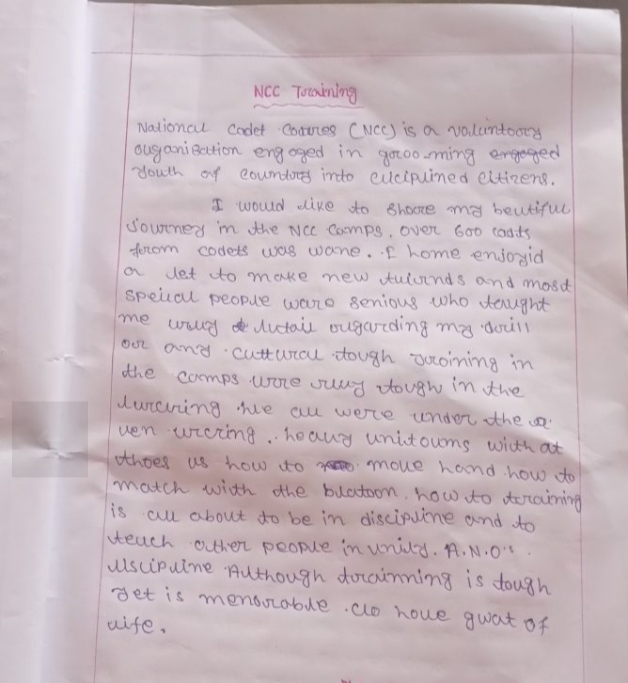 NCC Training
National Codet Cources (NCC) is a valuntoory
ouganisation engaged in goroo ming engaged
youth of country into cliciplined citizens.
I would like to shoore my beutiful
Journey in the NCC Camps, over 600 cadts
from codets was wane. I home enjoyid
a let to make new and most
speical people ware senious who taught
me wruy detail ougarding my drill
our any cuttural tough troining in
the camps were vruy tough in the
we all were under the
heavy unitoums with at
thoes us how to moue hand how to
match with the blatoon, how to training
is all about to be in discipline and to
teuch other people in unity. A.N.O's
uscipline Although training is tough
yet is memorable .clo houe gwat of
uife.